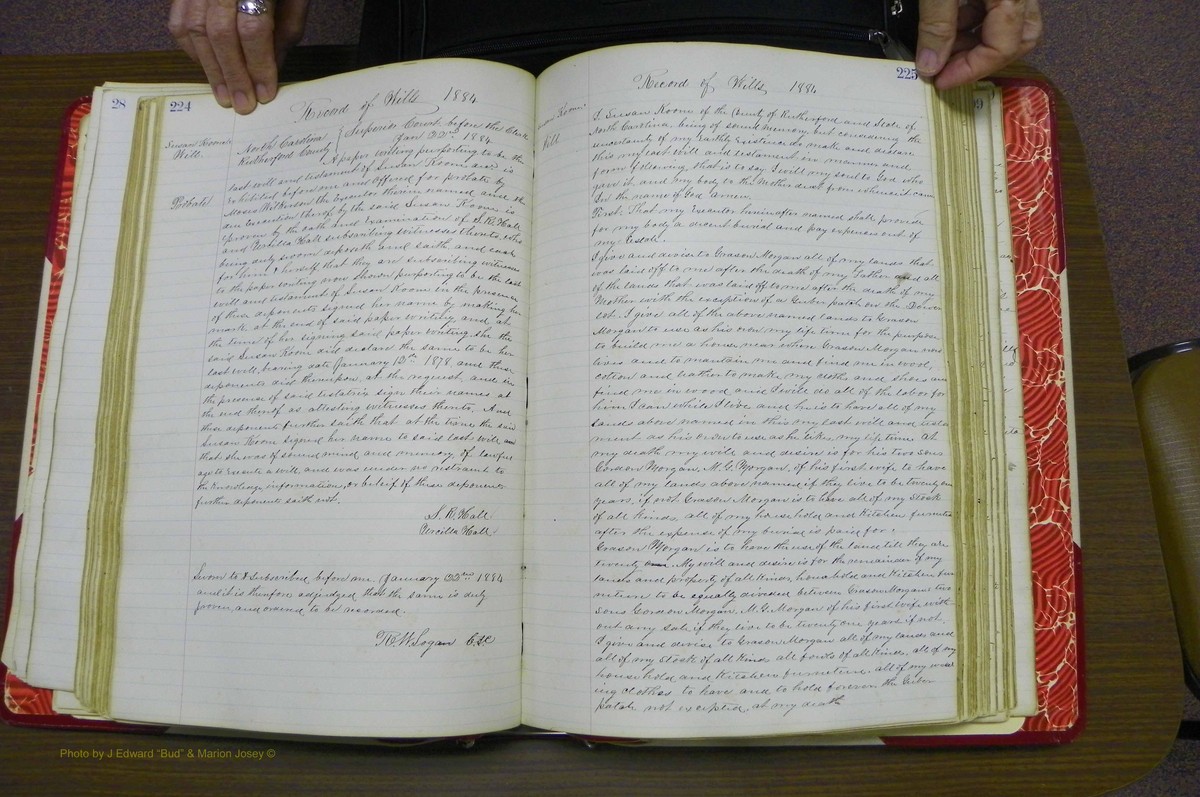 28
224
Record of Wills 1884
Susan Koon's
Will.
North Carolina
Rutherford County
Superior Court before the Clerk
Jan 22nd 1884
A paper writing purporting to be the
last will and testament of Susan Koon is
exhibited before me and offered for probate by
the Executor therein named and the
Probate
due execution thereof by the said Susan Koon is
proven by the oath and examination of S. R. Hall
and Hall subscribing witnesses thereto who
being duly sworn deposeth and saith and each
for him & herself that they are subscribing witnesses
to the paper writing now shown purporting to be the last
will and testament of Susan Koon in the presence
of these deponents signed her name by making her
mark at the end of said paper writing and at
the time of her signing said paper writing she the
said Susan Koon did declare the same to be her
last will, bearing date January 12th 1878 and these
deponents did thereupon, at the request, and in
the presence of said testatrix sign their names at
the end thereof as attesting witnesses thereto. And
these deponents further saith that at the time the said
Susan Koon signed her name to said last will and
that she was of sound mind and memory, of lawful
age to Execute a will, and was under no restraint to
the knowledge, information, or belief of these deponents
further deponent saith not.
S. R. Hall
Hall
Sworn to & subscribed before me, January 22nd 1884
and it is therefore adjudged that the same is duly
proven, and ordered to be recorded.
Logan C.S.C.
225
Record of Wills 1884
Will
I Susan Koon of the County of Rutherford and State of
North Carolina, being of sound memory, but considering the
uncertainty of my Earthly Existence do make and declare
this my last will and testament in manner and
form following, that is to say I will my soul to God who
gave it, and my body to the Mother dust from whence it came
In the name of God Amen.
First. That my Executor hereinafter named shall provide
for my body a decent burial and pay expenses out of
my Estate.
I give and devise to Grason Morgan all of my lands that
was laid off to me after the death of my Father and all
of the lands that was laid off to me after the death of my
Mother with the exception of a patch on the Dower
lot. I give all of the above named lands to Grason
Morgan to use as his own my life time for the purpose
to build me a house near where Grason Morgan now
lives and to maintain me and find me in wool,
cotton and leather to make my clothes and shoes and
find me in wood and I will do all of the labor for
him I can while I live and he is to have all of my
lands above named in this my last will and testa
ment as his own to use as he likes my life time at
my death my will and desire is for his two sons
Gordon Morgan, M. G. Morgan, of his first wife to have
all of my lands above named if they live to be twenty one
years, if not Grason Morgan is to have all of my stock
of all kinds, all of my household and kitchen furniture
after the expense of my burial is paid for.
Grason Morgan is to have the use of the lands till they are
twenty one. My will and desire is for the remainder of my
lands and property of all kinds, household and kitchen fur
niture to be equally divided between Grason Morgan's two
sons Gordon Morgan, M. G. Morgan of his first wife with
out any sale, if they live to be twenty one years if not,
I give and devise to Grason Morgan all of my lands and
all of my stock of all kinds all of all kinds, all of my
household and kitchen furniture, all of my wear
ing clothes to have and to hold forever the
patch not excepted, at my death
Photo by J Edward "Bud" & Marion Josey ©